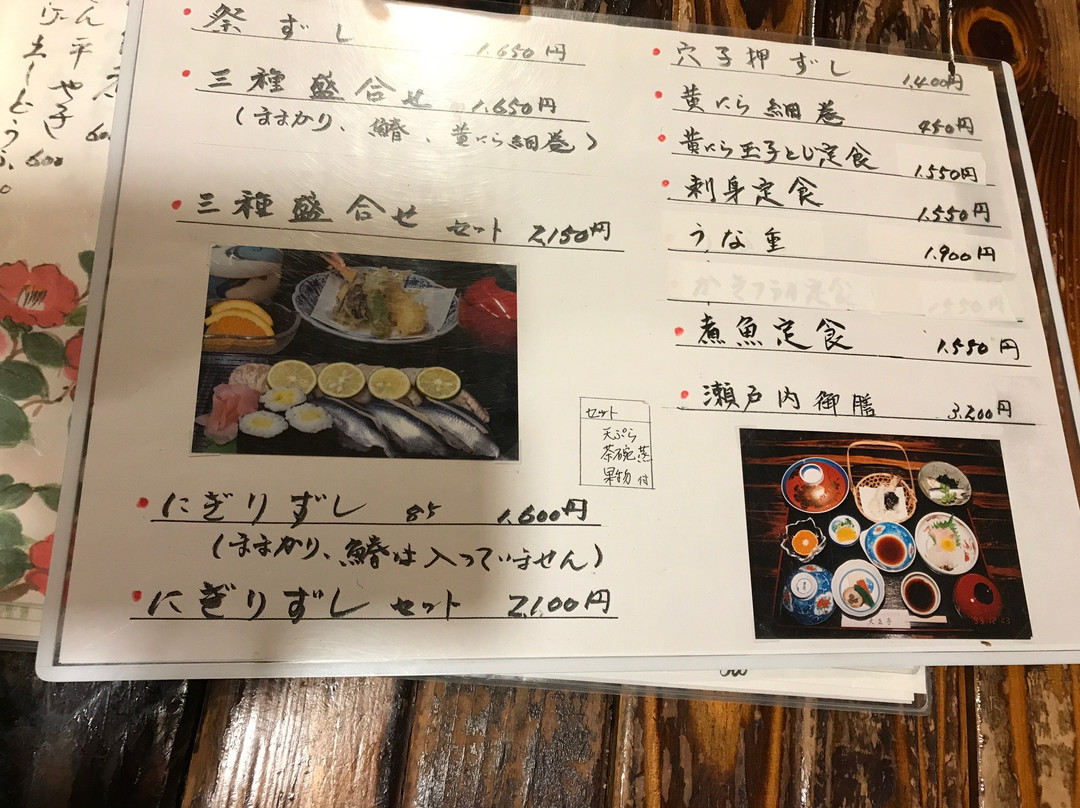 祭ずし 1.650円
三種盛合せ 1.650円
(ままかり、鰆、黄にら細巻)
三種盛合せ セット 2,150円
セット
天ぷら
茶碗蒸
果物 付
にぎりずし 85 1.600円
(ままかり、鰆は入っていません)
にぎりずし セット 2,100円
穴子押ずし 1.400円
黄にら細巻 450円
黄にら玉子とじ定食 1.550円
刺身定食 1.550円
うな重 1.900円
煮魚定食 1.550円
瀬戸内御膳 3.200円